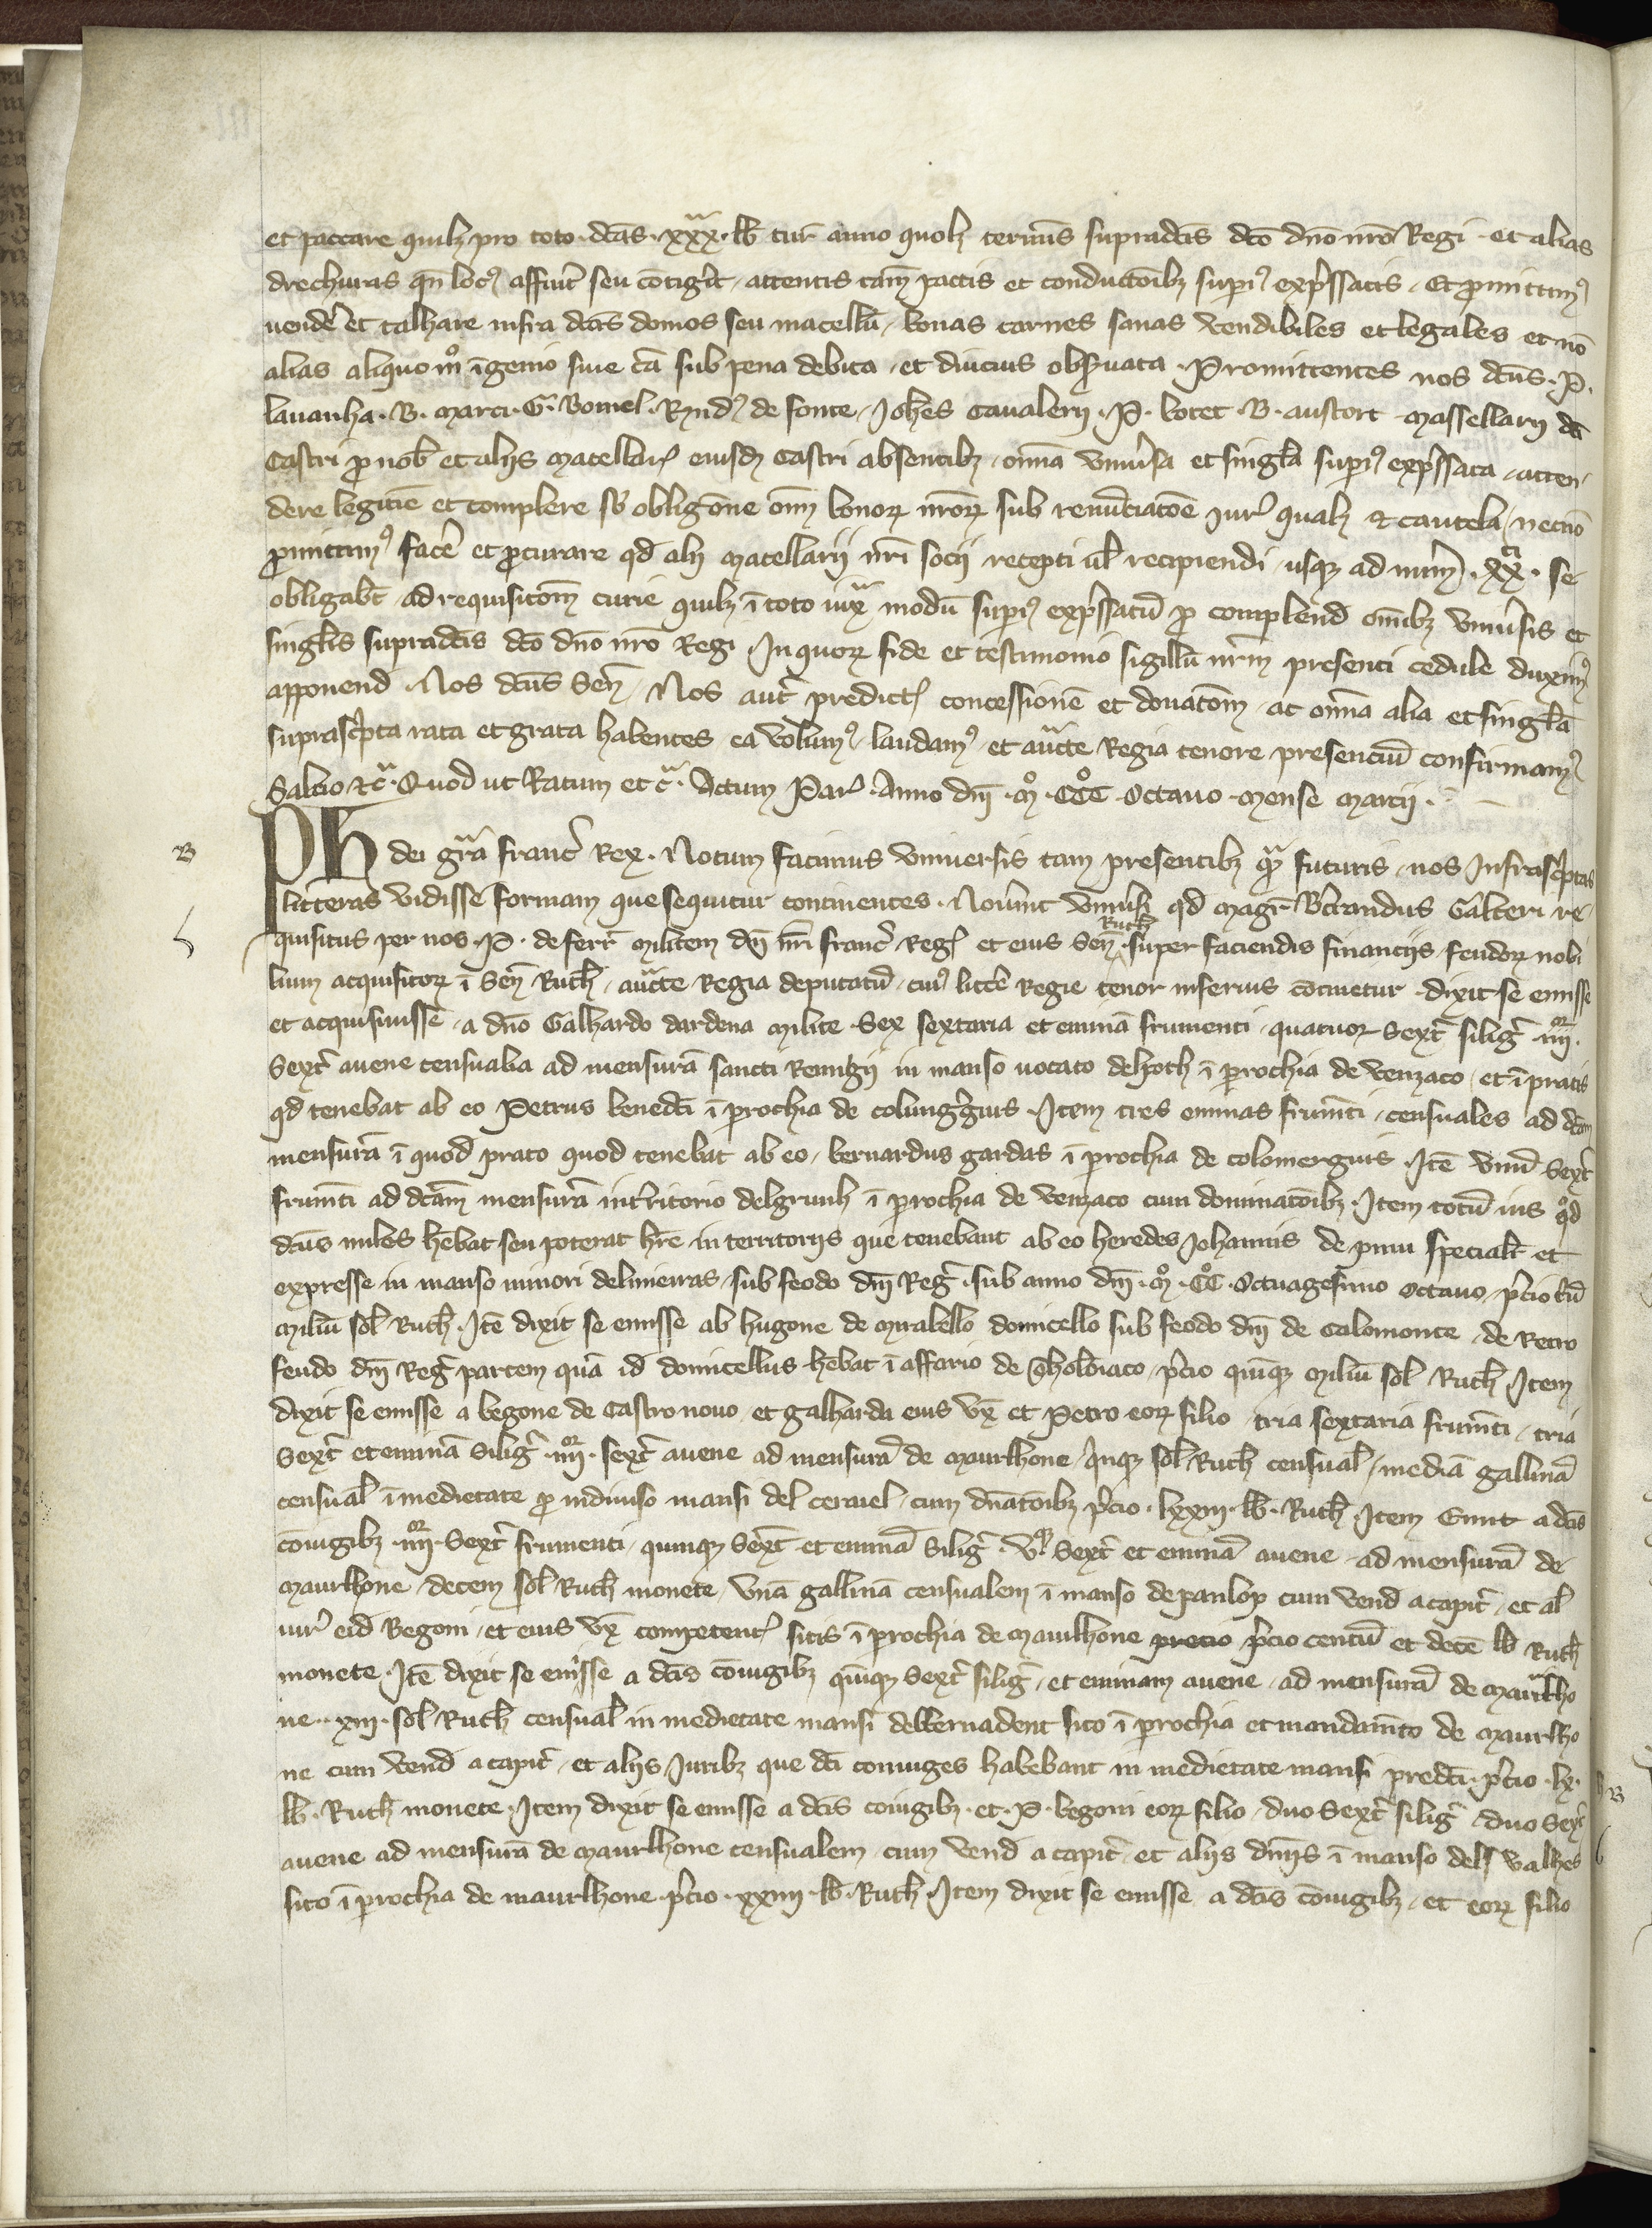 et paccare quilꝫ pro toto dc̃as xxx lb tur̃ anno quolꝫ terminis supradc̃is dc̃o dn̄o nr̄o Regi et alias
drechuras qn̄ locꝰ affuit̃ seu cōtigit̃ attentis tam̃ pactis et condictōibꝫ supiꝰ exp̃ssatis Et ꝓmittimꝰ
uende͛ et talhare infra dc̃as domos seu macellū bonas carnes sanas vendibiles et legales et nō
alias aliquo mͦ ĩgenio siue cā sub pena debita et diucius obs̃uata Promittentes nos dc̃us P.
lauanha B. marci G. Bomel Rȳndꝰ de fonte Joh̃es Caualerij P. botet B. austort Massellarij dc̃i
Castri ꝓ nob̃ et alijs macellar̃ eiusdꝫ castri absentibꝫ om̃ia vniũsa et sing̃la supiꝰ exp̃ssata atten
dere legitīe et complere sb̃ oblig̃one om̃ bonoꝝ nr̃oꝝ sub renũciatōe Jur̃ qualꝫ et cautela necnō
ꝓmittimꝰ face͛ et ꝓcurare qd̃ alij macellarii nr̃i socij recepti ul̃ recipiendi usqꝫ ad num̃ xx se
obligab̃t ad requisitōm curie quilꝫ ĩ toto iuxͣ modū supiꝰ exp̃ssatū ꝓ complend̃ om̃ibꝫ vniũsis et
sing̃lis supradc̃is dc̃o dn̄o nr̄o Regi In quoꝝ fide et testimonio sigillū nr̄m presenti cedule duximꝰ
apponend̃ Nos dc̃us Señ Nos aut̃ predict̃ concessionē et donatōm ac om̃ia alia et sing̃la
suprasc̃pta rata et grata habentes ea volumꝰ laudamꝰ et auc̃te Regia tenore presenciū confirmamꝰ
Saluo ⁊cͣ. Quod ut Ratum et cͣ. Actum Par̃ Anno dn̄i mͦ CCCͦ Octauo Mense Marcij.
B
Ph dei grã franc̃ Rex. Notum facimus vniuersis tam presentibꝫ qͣm futuris nos Infrasc̃ptas
litteras vidisse formam que sequitur continentes. Nouerint vniũsi qd̃ magr̃ Bt̃randus Galteri re
quisitus per nos P. de ferr̃ Militem dn̄i nr̃i franc̃ Reg̃ et eius Señ Ruth̃ super faciendis financijs feudoꝝ nobi
lium acquisitoꝝ ĩ Señ Ruth̃ auc̃te Regia deputatū cuiꝰ litt̃e Regie tenor inferius cōtinetur dixit se emisse
et acquisiuisse a dn̄o Galhardo dardena milite Sex sextaria et eminā frumenti quatuor Sext̃ silig̃ iiijor
Sext̃ auene censualia ad mensurā sancti Remigij in manso uocato delpoth ĩ parochia de venzaco et ĩ pratis
qd̃ tenebat ab eo Petrus benedc̃i ĩ parochia de colung̃guis Item tres eminas frum̃ti censuales ad dc̃am
mensurā ĩ quod prato quod tenebat ab eo bernardus gardas ĩ parochia de colomerguis Itē vnū Sext̃
frum̃ti ad dc̃am mensurā int̃ritorio delgrunh ĩ parochia de venzaco cum dominatōibꝫ Item totū ius qͦd
dc̃us miles hēbat seu poterat hr̃e in territorijs que tenebant ab eo heredes Johannis de pinu specialit̃ et
expresse in manso minori delinieiras sub feodo dn̄i Reg̃ sub anno dn̄i mͦ CCͦ Octuagesimo octauo p̃cio triū
miliū sol̃ Ruth̃ Itē dixit se emisse ab hugone de mirabello domicello sub feodo dn̄i de Calomonte de Retro
feudo dn̄i Reg̃ partem quā id̃ domicellus hēbat ĩ affario de Tholoniaco p̃cio quīqꝫ miliū sol̃ Ruth̃ Item
dixit se emisse a begone de Castronouo et galharda eius vx̃ et Petro eoꝝ filio tria sextaria frum̃ti tria
Sext̃ et eminā Silig̃ iiijor sext̃ auene ad mensurā de maurlhone qͥnqꝫ sol̃ Ruth̃ censual̃ mediā gallinā
censual̃ ĩ medietate ꝓ indiuiso mansi del ceruel cum dn̄atōibꝫ p̃cio lxxiij lb Ruth̃ Item Emit a dc̃is
cōiugibꝫ iiijor Sext̃ frumenti quinqꝫ Sext̃ et eminā Silig̃ vqꝫ Sext̃ et eminā auene ad mensurā de
maurlhone decem sol̃ Ruth̃ monete vnā gallinā censualem ĩ manso depanlop cum vend̃ acapit̃ et al̃
iur̃ eid̃ Begoni et eius vx̃ competent̃ sitis ĩ parochia de maurlhone precio p̃cio centū et decē lb Ruth̃
monete Itē dixit se emisse a dc̃is cōiugibꝫ quīqꝫ Sext̃ silig̃ et eminam auene ad mensurā de maurlho
ne xiij sol̃ Ruth̃ censual̃ in medietate mansi delbernadent sito ĩ parochia et mandam̃to de maurlho
ne cum vend̃ acapit̃ et alijs Juribꝫ que dc̃i coniuges habebant in medietate mansi predc̃i p̃cio lx
lb Ruth̃ monete Item dixit se emisse a dc̃is cōiugibꝫ et P. begoni eoꝝ filio duo Sext̃ silig̃ duo Sext̃
auene ad mensurā de maurlhone censualem cum vend̃ acapit̃ et alijs dn̄ijs ĩ manso dels valhes
sito ĩ parochia de maurlhone p̃cio xxiiij lb Ruth̃ Item dixit se emisse a dc̃is cōiugibꝫ et eoꝝ filio